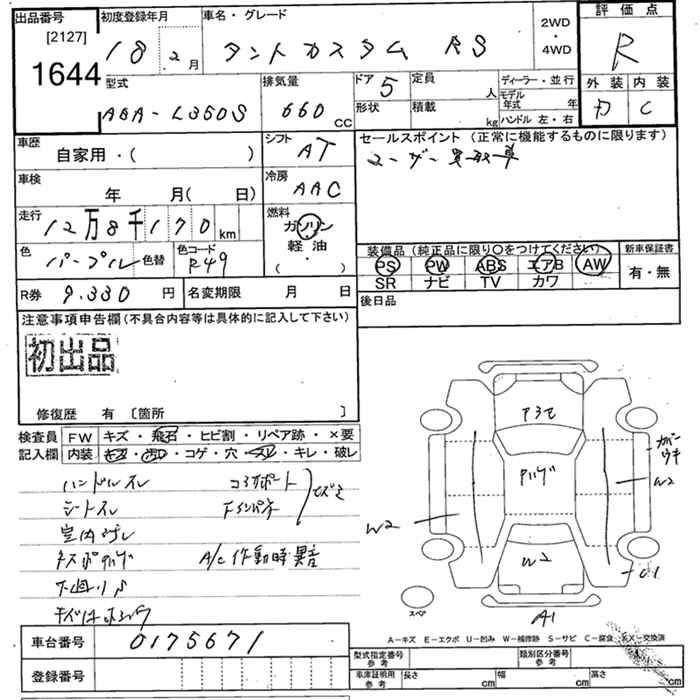 出品番号
[2127]
1644
初度登録年月
18 2月
車名・グレード
タントカスタム RS
2WD
・
4WD
評価点
R
外装 内装
D C
型式
ABA-L350S
排気量
660 CC
ドア 5
形状
定員 人
積載 kg
ディーラー・並行
モデル年式 年
ハンドル 左・右
車歴
自家用・( )
シフト
AT
セールスポイント (正常に機能するものに限ります)
ユーザー買取車
車検
年 月( 日)
冷房
AAC
走行
12万8千170 km
燃料
ガソリン
・
軽油
・
( )
色
パープル
色替
色コード
R49
装備品 (純正品に限り〇をつけてください)
PS PW ABS エアB AW
SR ナビ TV カワ
新車保証書
有・無
R券 9.330 円
名変期限 月 日
後日品
注意事項申告欄(不具合内容等は具体的に記入して下さい)
初出品
修復歴 有 〔箇所 〕
検査員
記入欄
FW キズ・飛石・ヒビ割・リペア跡・×要
内装 キズ・・コゲ・穴・スレ・キレ・破レ
ハンドルスレ
コアサポート
シートスレ
室内
A/C作動時異音
下廻りS
W2
W2
W2
C1
A1
スペア
A－キズ E－エクボ U－凹み W－補修跡 S－サビ C－腐食 XX－交換済
車台番号 0175671
登録番号
型式指定番号
参考
類別区分番号
参考
車庫証明用
参考
長さ cm
幅 cm
高さ cm